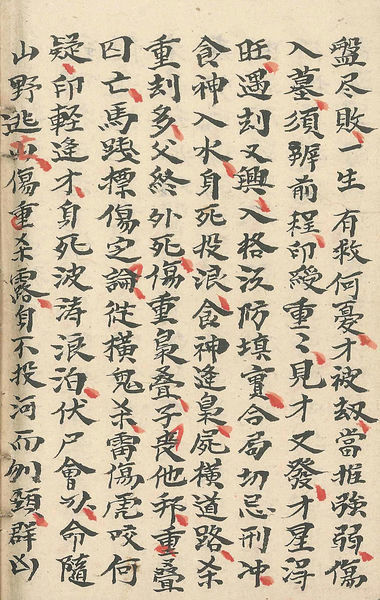 盤尽敗一生有救何憂才被劫當推強弱傷
入墓須辨前程印綬重〻見才又發才星淂
旺遇刻又興入格汯防填實合局切忌刑冲
食神入水身死投浪食神逢梟屍橫道路杀
重刻多父終外死傷重梟叠子喪他邦重叠
囚亡馬踐摽傷定論從橫鬼杀雷傷虎咬何
疑印軽逢才身死波涛浪泊伏尸會以命隨
山野逃傷重杀露身不投河而刎頚群凶